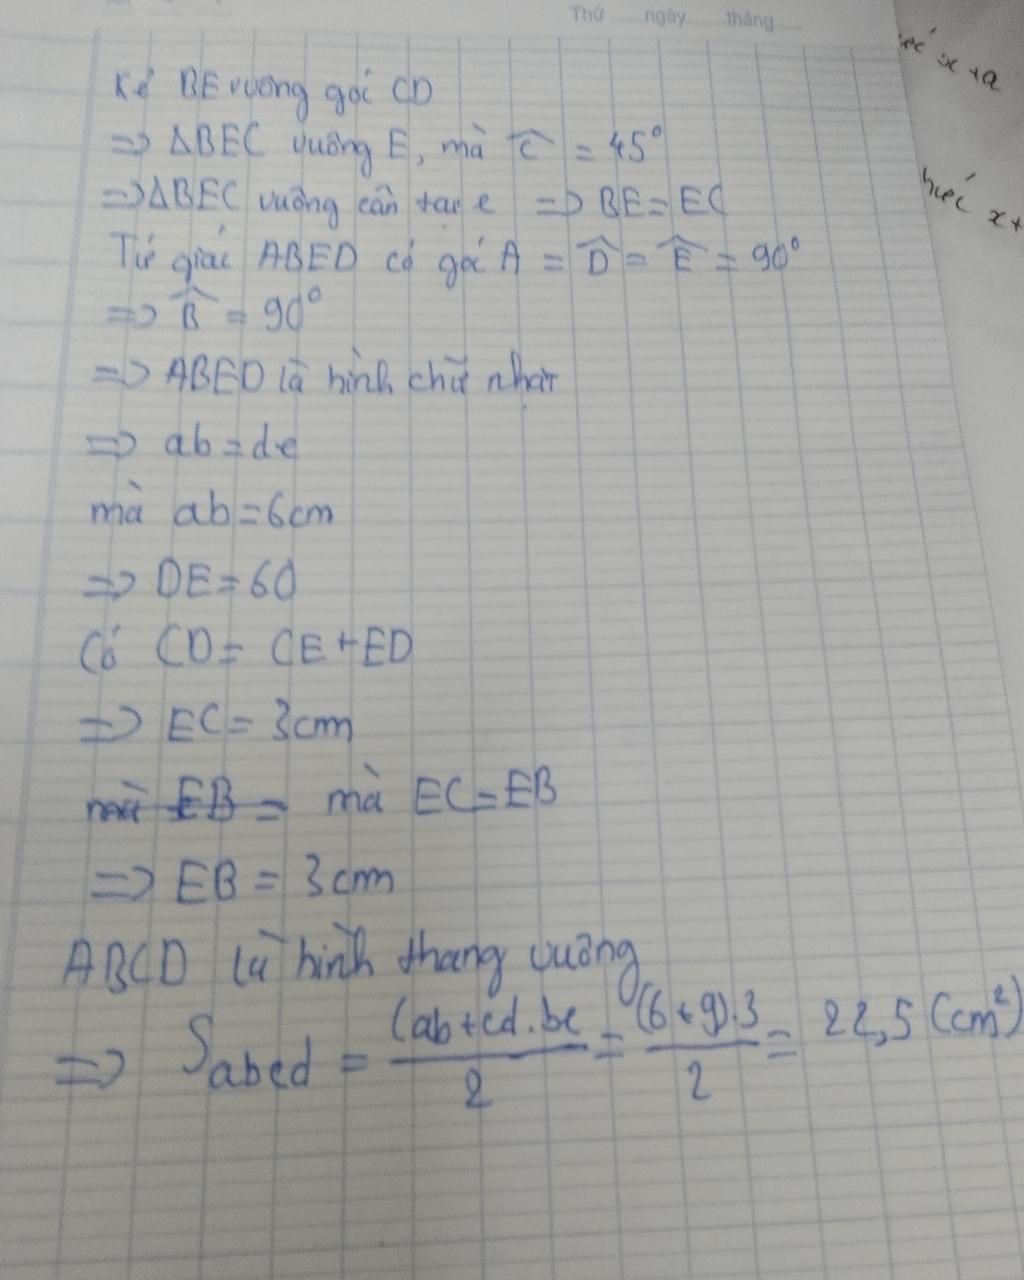 Thứ ngày tháng
Kẻ BE vuông gói CD
=> ΔBEC vuông E, mà Ĉ = 45°
=> ΔBEC vuông cân tại e => BE = EC
Tứ giác ABED có gói A = D̂ = Ê = 90°
=> B̂ = 90°
=> ABED là hình chữ nhật
=> ab = de
mà ab = 6cm
=> DE = 60
Có CD = CE + ED
=> EC = 3cm
mà EB = mà EC = EB
=> EB = 3cm
ABCD là hình thang vuông
=> Sabcd = (ab + cd . be / 2 = (6 + 9).3 / 2 = 22,5 (cm²)
x + a
x +